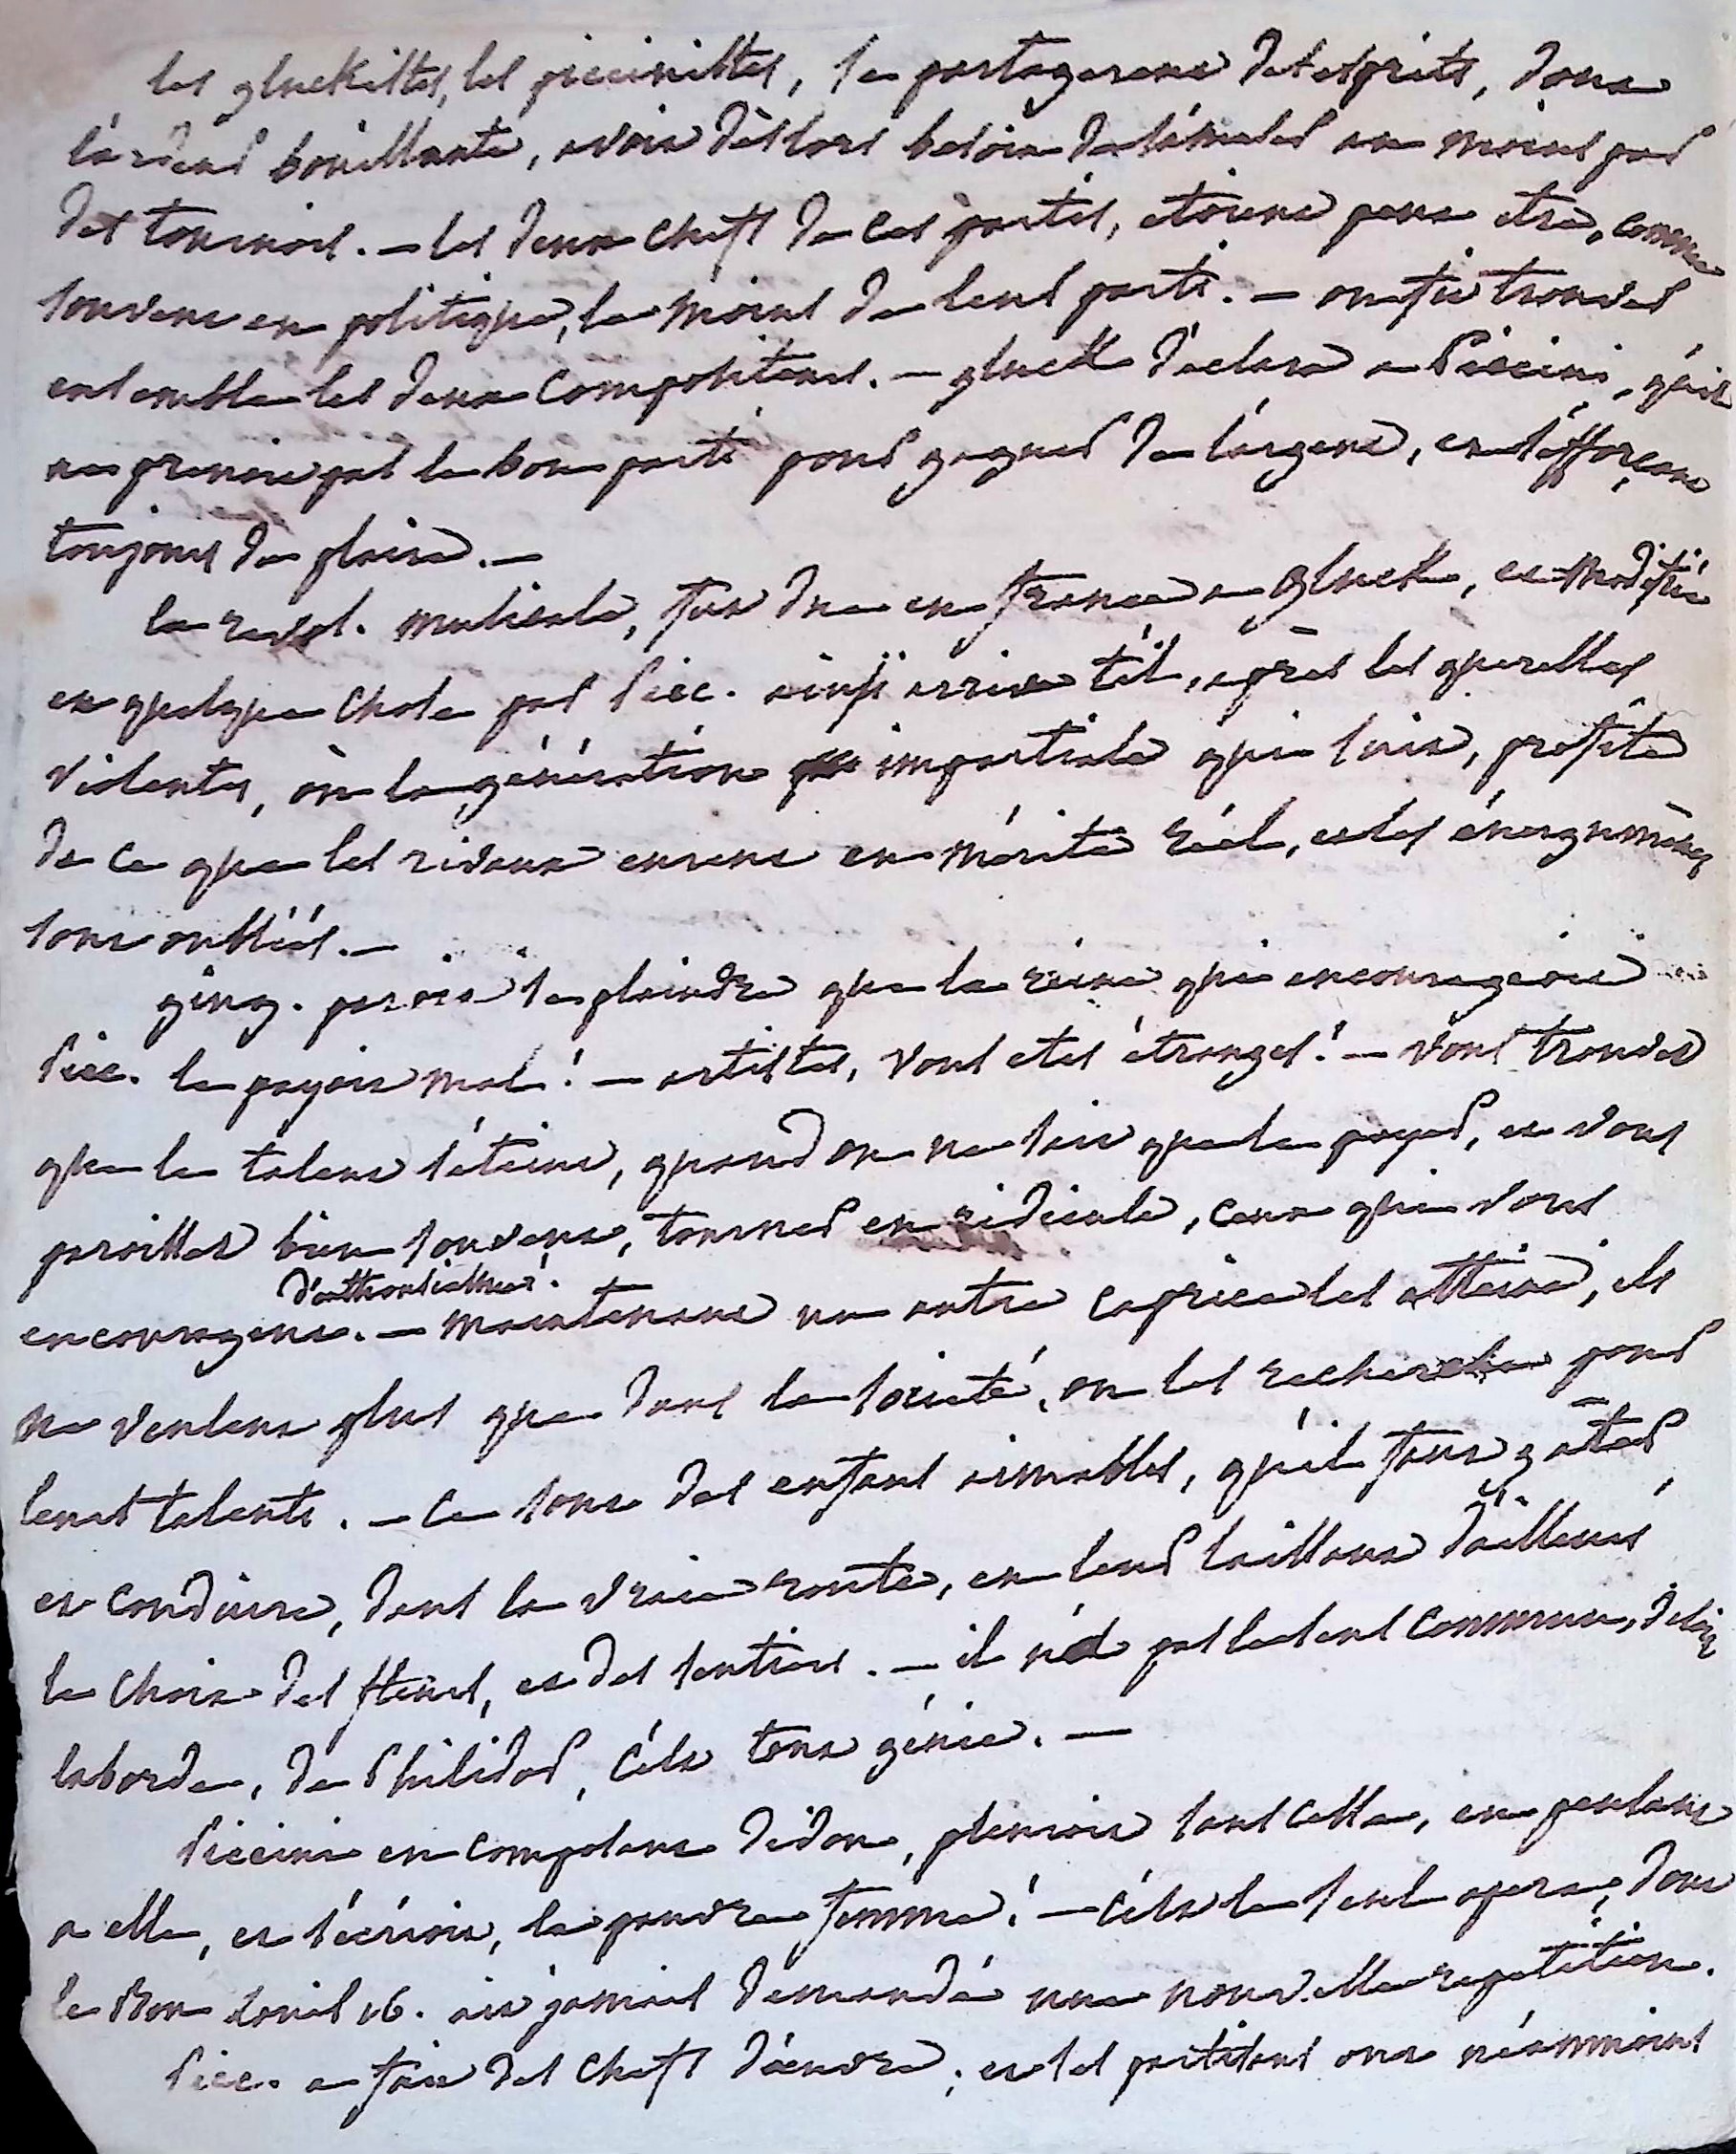 les gluckistes, les piccinistes, se partagerent des esprits, dont
l'ardeur bouillante, avoit dèslors besoin de s'émules au moins par
des tournois. — les deux chefs de ces partis, étoient peut etre, comme
souvent en politique, le moins de leur parti. — on fit trouver
ensemble les deux compositeurs. — gluck déclara a Piccini, qu'il
ne prenoit pas le bon parti pour gagner de l'argent, en s'efforçant
toujours de plaire. —
la révol. musicale, fut due en france a Gluck, et modifiée
en quelque chose par Picc. ainsi arrive t'il, après les querelles
violentes, où la génération impartiale qui suit, profite
de ce que les rivaux eurent en mérite réel, et les énergumènes
sont oubliés. —
ging. paroit se plaindre que la reine qui encourageoit
Picc. le payoit mal! — artistes, vous etes étranges! — vous trouvez
que le talent s'éteint, quand on ne sait que le payer, et vous
paroissez bien souvent, tourner en ridicule, ceux qui vous
d'enthousiasme.
encouragent. — maintenant un autre caprice les atteint, ils
ne veulent plus que dans la société, on les recherche pour
leurs talents. — ce sont des enfans aimables, qu'il faut gâter,
et conduire, dans la vraie route, en leur laissant d'ailleurs
le choix des fleurs, et des sentiers. — il n'est pas le sens commun, disoit
laborde, de Philidor, c'est tout génie. —
Piccini en composant didon, pleuroit sans cesse, en pensant
a elle, et s'écrioit, la pauvre femme! — c'est le seul opera, dont
le Bon Louis 16. ait jamais demandé une nouvelle repétition.
Picc. a fait des chefs d'œuvre; et les partisans ont néanmoins